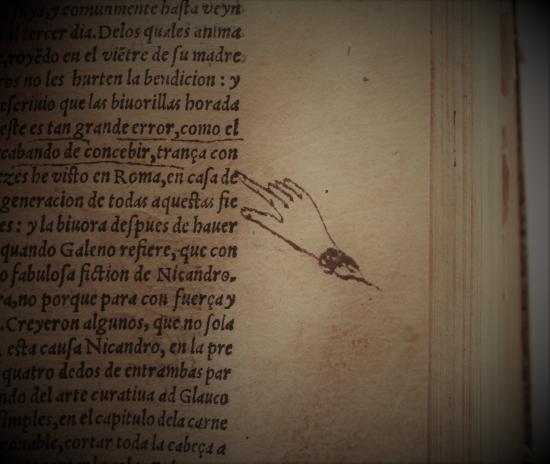 suya, y comunmente hasta veyn
al tercer dia. Delos quales anima
, royẽdo en el viẽtre de su madre
ros no les hurten la bendicion : y
escriuio que las biuorillas horada
este es tan grande error, como el
cabando de concebir, trança con
ezes he visto en Roma, en casa de
generacion de todas aquestas fie
es : y la biuora despues de hauer
quando Galeno refiere, que con
o fabulosa fiction de Nicandro.
ra, no porque para con fuerça y
. Creyeron algunos, que no sola
, esta causa Nicandro, en la pre
quatro dedos de entrambas par
ndo del arte curatiua ad Glauco
simples, en el capitulo dela carne
ronable, cortar toda la cabeça a